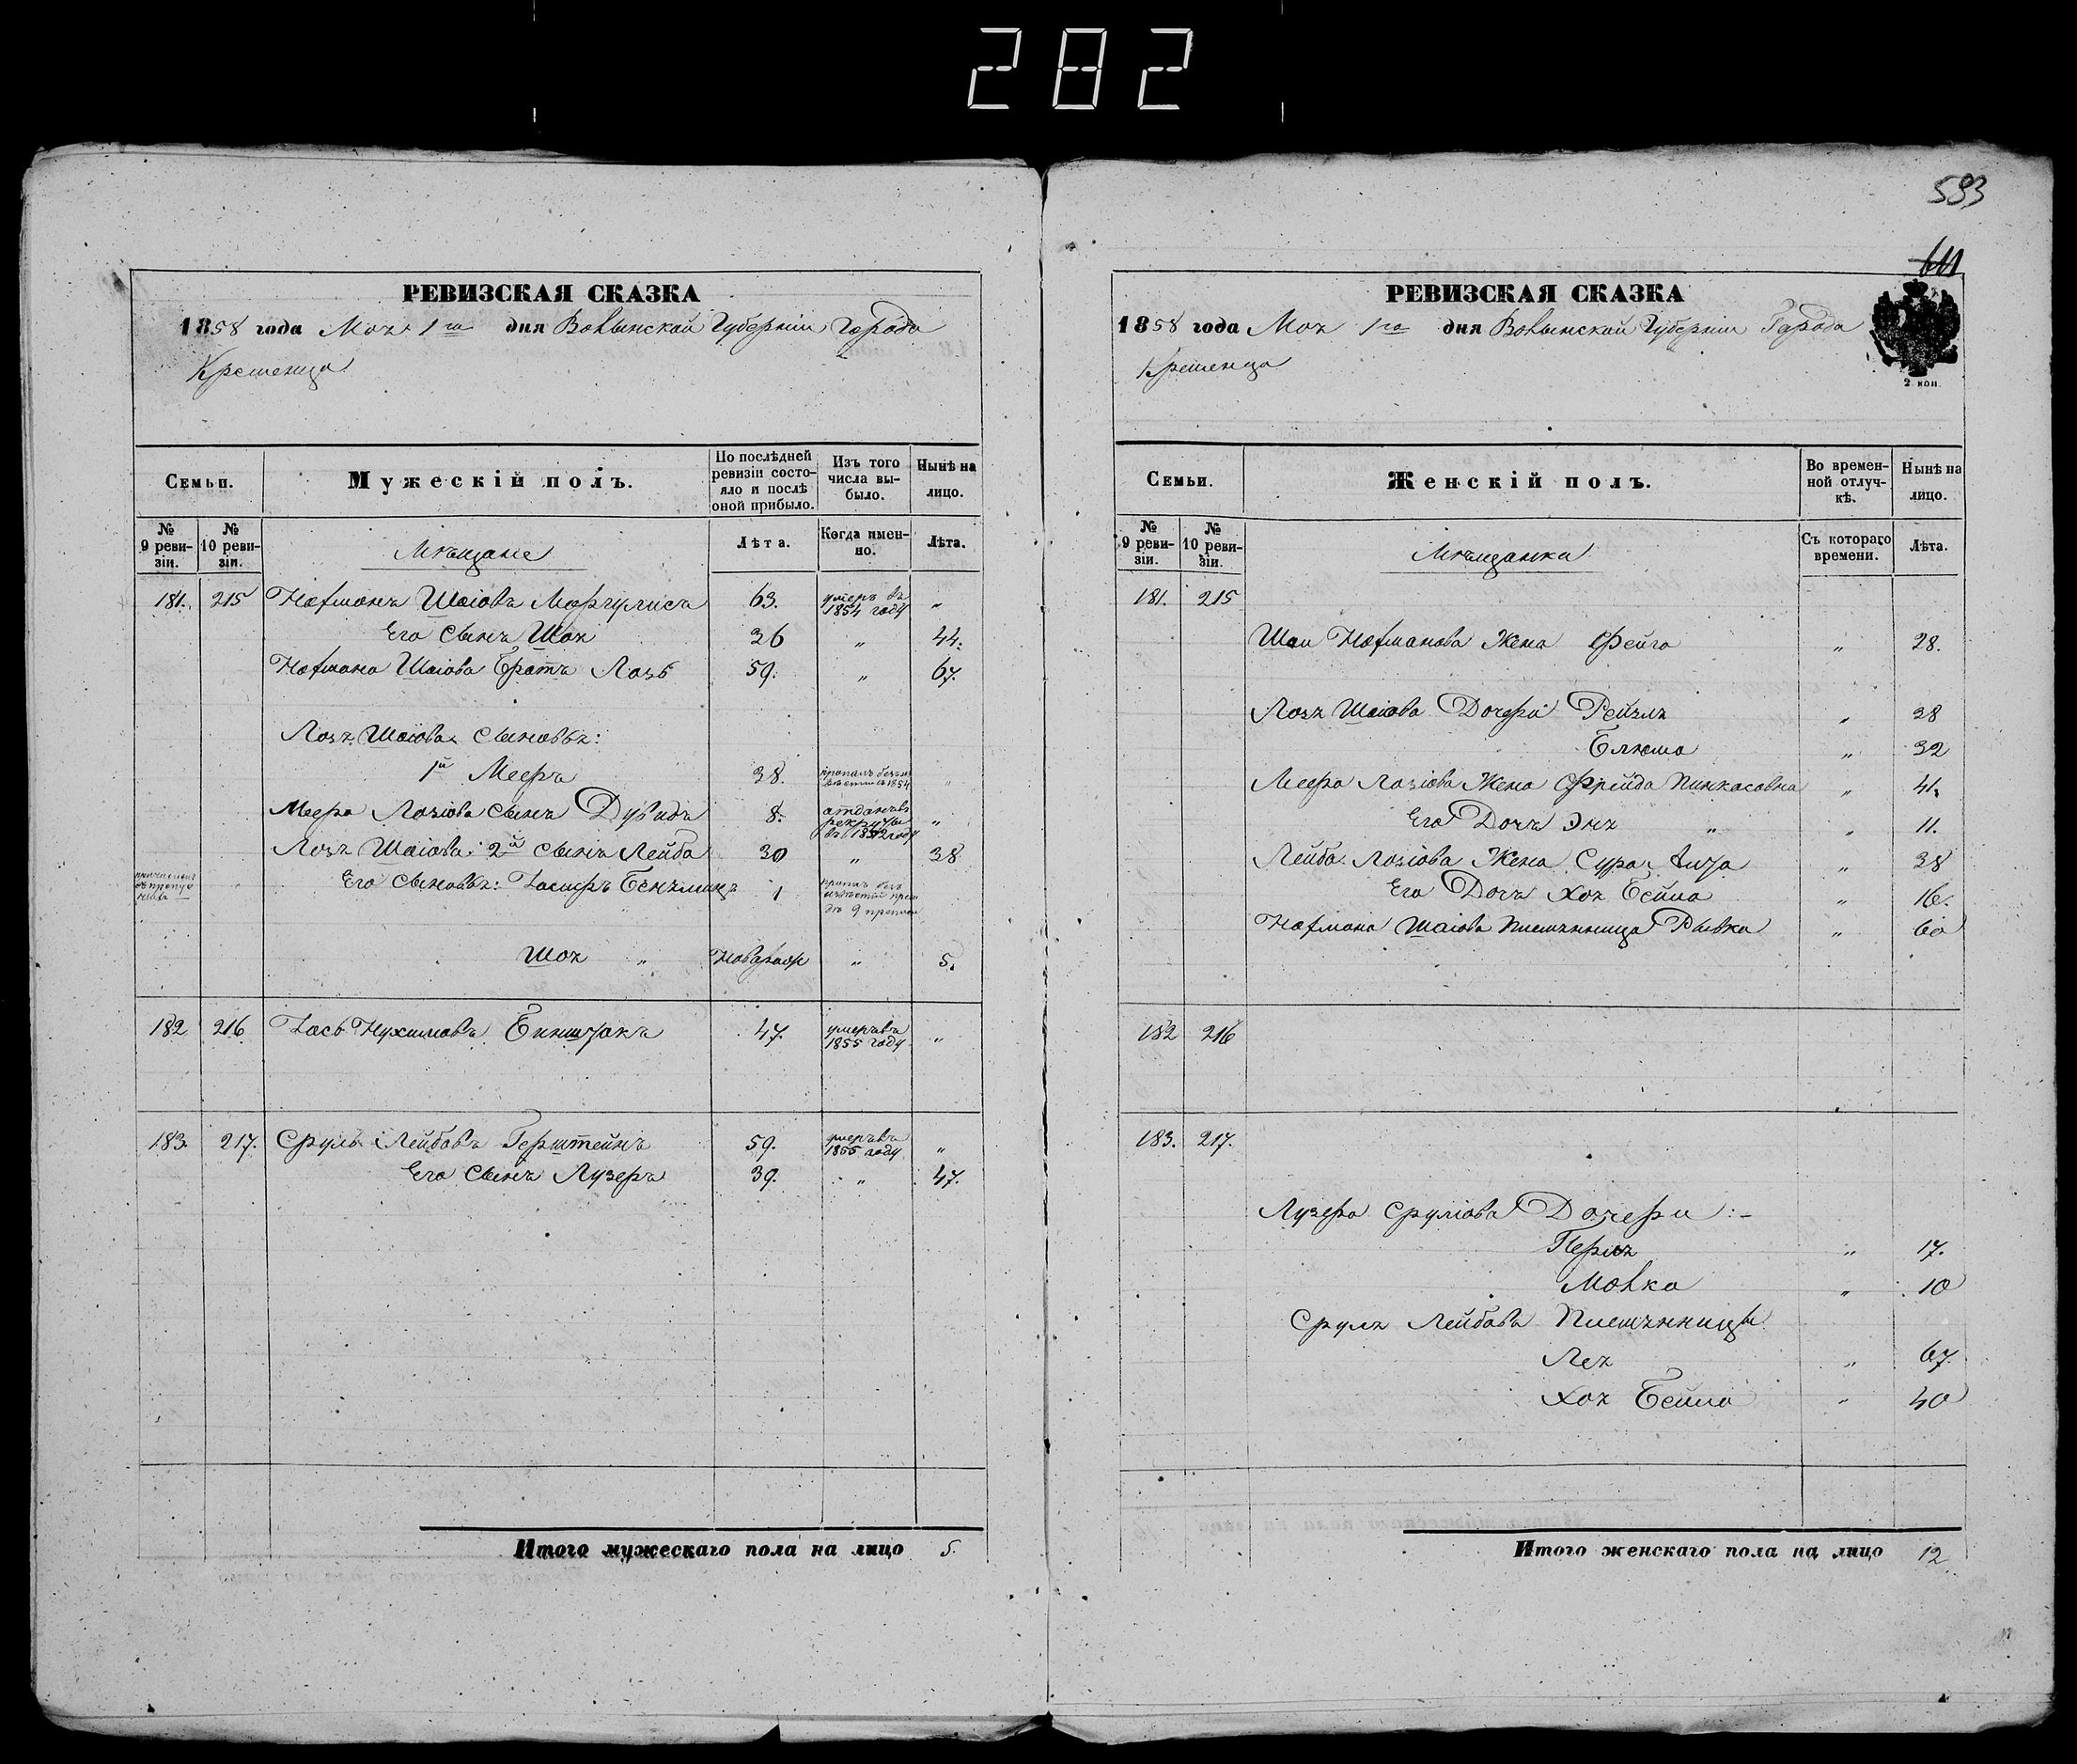 282
593
611
РЕВИЗСКАЯ СКАЗКА
1858 года Мая 1го дня Волынской Губерніи Города
Кременца
Семьи.
Мужескій полъ.
По послѣдней ревизіи состояло и послѣ оной прибыло.
Изъ того числа выбыло.
Нынѣ на лицо.
№ 9 ревизіи.
№ 10 ревизіи.
Мѣщане
Лѣта.
Когда именно.
Лѣта.
181. 215 Нафманъ Шаіовъ Маргулисъ 63. умеръ въ 1854 году "
Его сынъ Шая 36 " 44.
Нафмана Шаіова Братъ Лазь 59. " 67.
Лазя Шаіова сыновья:
1й Мееръ 38. пропалъ 1854 "
Меера Лазіова сынъ Дувидъ 8. отданъ въ рекруты въ 1852 году "
Лазя Шаіова 2й сынъ Лейба 30 " 38
Его сыновья: 1
Шая " Новорож " 5.
182 216 Іось Нухимовъ 47. умеръ въ 1855 году "
183. 217. Сруль Лейбовъ Герштейнъ 59. умеръ въ 1855 году "
Его сынъ Лузеръ 39. " 47.
Итого мужескаго пола на лицо 5.
РЕВИЗСКАЯ СКАЗКА
1858 года Мая 1го дня Волынской Губерніи Города
Кременца
2 коп.
Семьи.
Женскій полъ.
Во временной отлучкѣ.
Нынѣ на лицо.
№ 9 ревизіи.
№ 10 ревизіи.
Мѣщанки
Съ котораго времени.
Лѣта.
181. 215
Шаи Нафманова Жена Фейга " 28.
Лазя Шаіова Дочери Рейзля " 38
Блюма " 32
Меера Лазіова Жена Фрейда Пинкасовна " 41.
Его Дочь Эня " " 11.
Лейба Лазіова Жена Сура " 38
Его Дочь Хая Бейла " 16.
Нафмана Шаіова Племянница Рывка " 60
182 216
183. 217.
Лузера Сруліова Дочери:-
Перля " 17.
Малка " 10
Сруля Лейбова Племянницы
Лея " 67.
Хая Бейла " 40
Итого женскаго пола на лицо 12.